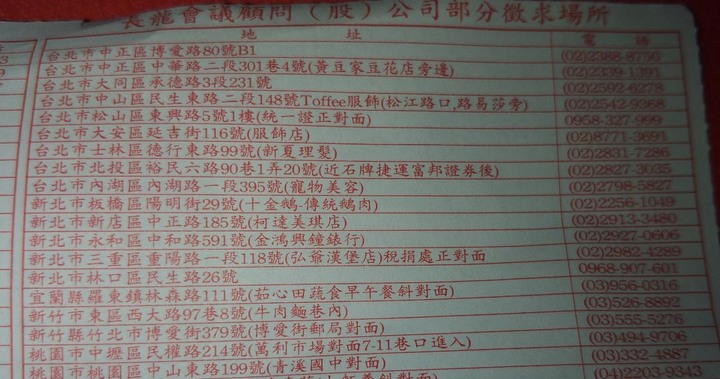 長龍會議顧問（股）公司部分徵求場所
地 址 電 話
台北市中正區博愛路80號B1 (02)2388-8750
台北市中正區中華路二段301巷4號(黃豆家豆花店旁邊) (02)2339-1391
台北市大同區承德路3段231號 (02)2592-6278
台北市中山區民生東路二段148號Toffee服飾(松江路口,路易莎旁) (02)2542-9368
台北市松山區東興路5號1樓(統一證正對面) 0958-327-999
台北市大安區延吉街116號(服飾店) (02)8771-3691
台北市士林區德行東路99號(新夏理髮) (02)2831-7286
台北市北投區裕民六路90巷1弄20號(近石牌捷運富邦證券後) (02)2827-3035
台北市內湖區內湖路一段395號(寵物美容) (02)2798-5827
新北市板橋區陽明街29號(十金鵝-傳統鵝肉) (02)2256-1049
新北市新店區中正路185號(柯達美琪店) (02)2913-3480
新北市永和區中和路591號(金鴻興鐘錶行) (02)2927-0606
新北市三重區重陽路一段118號(弘爺漢堡店)稅捐處正對面 (02)2982-4289
新北市林口區民生路26號 0968-907-601
宜蘭縣羅東鎮林森路111號(茹心田蔬食早午餐斜對面) (03)956-0316
新竹市東區西大路97巷8號(牛肉麵巷內) (03)526-8892
新竹縣竹北市博愛街379號(博愛街郵局對面) (03)555-5276
桃園市中壢區民權路214號(萬利市場對面7-11巷口進入) (03)494-9706
桃園市桃園區中山東路199號(青溪國中對面) (03)332-4887
(04)2203-9343